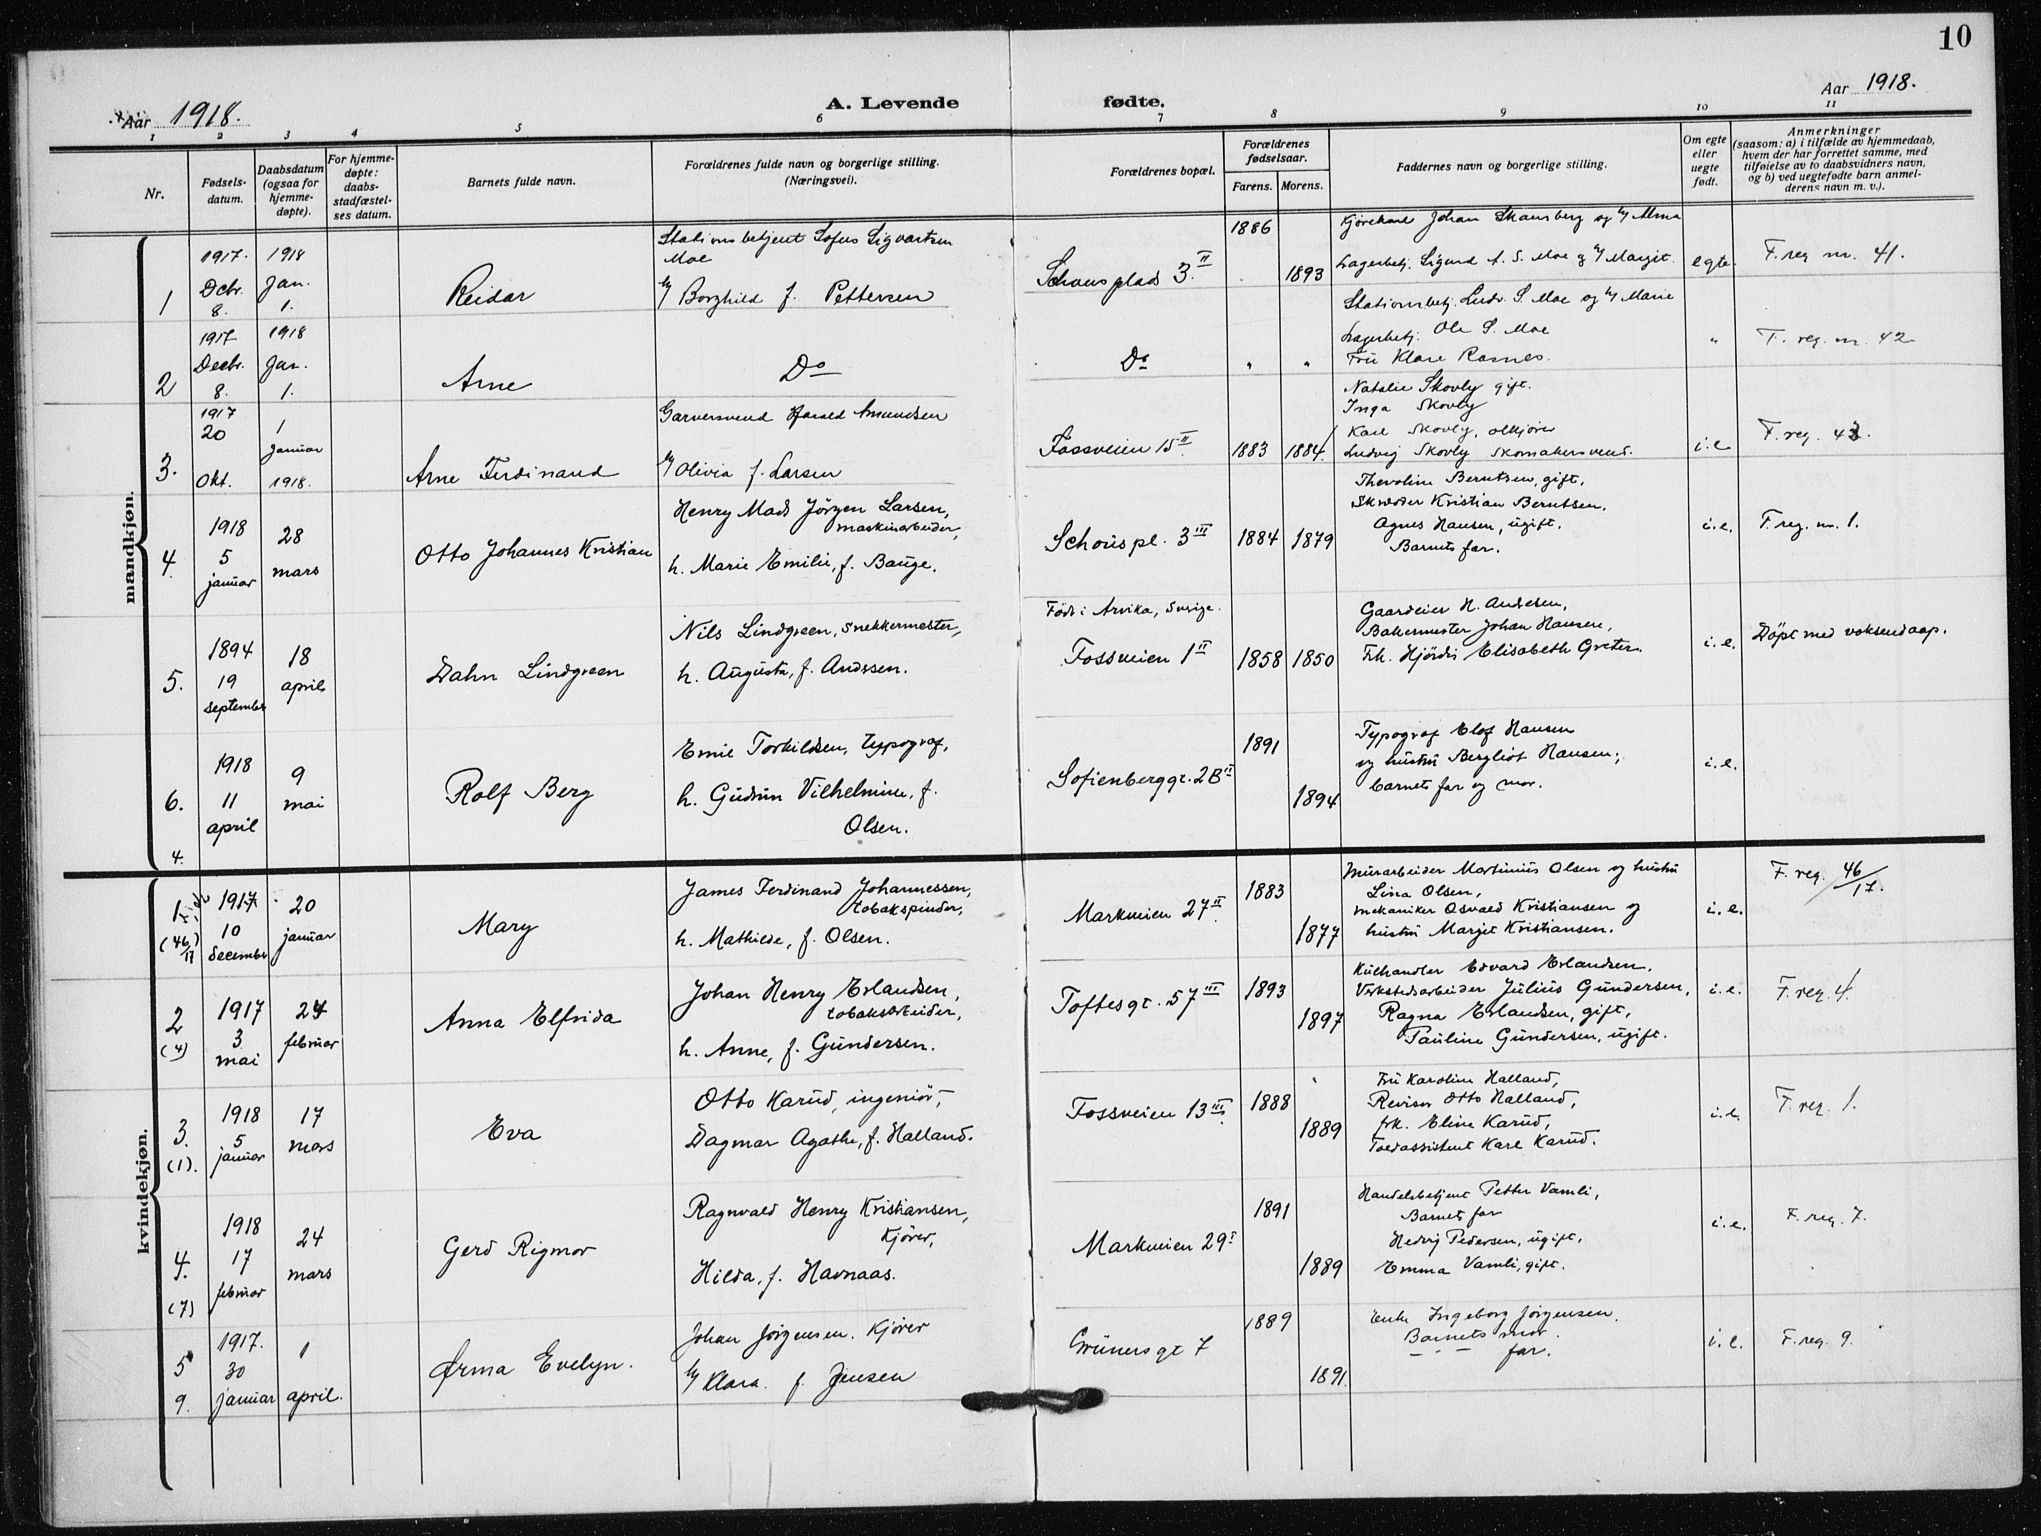 10
Aar 1918.
A. Levende fødte.
Aar 1918.
1 2 3 4 5 6 7 8 9 10 11
Nr.
Fødsels-
datum.
Daabsdatum
(ogsaa for
hjemme-
døpte).
For hjemme-
døpte:
daabs-
stadfæstel-
ses datum.
Barnets fulde navn.
Forældrenes fulde navn og borgerlige stilling.
(Næringsvei).
Forældrenes bopæl.
Forældrenes
fødselsaar.
Farens. Morens.
Faddernes navn og borgerlige stilling.
Om egte
eller
uegte
født.
Anmerkninger
(saasom: a) i tilfælde av hjemmedaab,
hvem der har forrettet samme, med
tilføielse av to daabsvidners navn,
og b) ved uegtefødte barn anmel-
derens navn m. v.).
mandkjøn.
1
1917.
Decbr.
8.
1918
Jan.
1.
Reidar
Stationsbetjent Sofus Sigvartsen
Moe
h/ Borghild f. Pettersen
Schousplads 3 II
1886
1893
Kjørekarl Johan Skansberg og h/ Alma
Lagerbetj. Sigurd A. S. Moe og h/ Margit.
Stationsbetj. Ludv. S. Moe og h/ Marie
egte
F. reg nr. 41.
2
1917
Decbr.
8.
1918
Jan.
1.
Arne
Do
Do
"
"
Lagerbetj. Ole S. Moe
Fru Klara Rasnes.
"
F. reg. nr. 42
3.
1917
20
Okt.
1
Januar
1918.
Arne Ferdinand
Garversvend Harald Amundsen
h/ Olivia f. Larsen
Fossveien 15 II
1883
1884
Natalie Skovly gift.
Inga Skovly
Karl Skovly, ølkjører
Ludvig Skovly Skomakersvend.
i.e.
F. reg. 43.
4.
1918
5
januar
28
mars
Otto Johannes Kristian
Henry Mads Jörgen Larsen,
maskinarbeider,
h. Marie Emilie, f. Bauge.
Schouspl. 3 III
1884
1879
Thevoline Berntsen, gift,
Skrædder Kristian Berntsen.
Agnes Hansen, ugift.
Barnets far.
i.e.
F. reg. nr. 1.
5.
1894
19
september
18
april
Dahn Lindgreen
Nils Lindgreen, snekkermester,
h. Augusta, f. Anderssen.
Født i Arvika, Sverige.
Fossveien 1 II
1858
1850
Gaardeier H. Andresen,
Bakermester Johan Hansen,
Frk. Hjørdis Elisabeth Greter.
i.e.
Döpt med voksendaap.
6.
1918
11
april
9
mai
Rolf Berg
Emil Torkildsen, typograf,
h. Gudrun Vilhelmine, f.
Olsen.
Sofienberggt. 2 B II
1891
1894
Typograf Elof Hansen
og hustru Bergliot Hansen;
barnets far og mor.
i.e.
4.
kvindekjøn.
1
(46/17)
1917
10
december
20
januar
Mary
James Ferdinand Johannessen,
tobakspinder,
h. Mathilde, f. Olsen.
Markveien 27 II
1883
1877
Murarbeider Martinius Olsen og hustru
Lina Olsen,
mekaniker Osvald Kristiansen og
hustru Margit Kristiansen.
i.e.
F. reg. 46/17.
2
(4)
1917
3
mai
24
februar
Anna Elfrida
Johan Henry Erlandsen,
tobaksarbeider,
h. Anne, f. Gundersen.
Toftesgt. 57 III
1893
1897
Kulhandler Edvard Erlandsen.
Verkstedsarbeider Julius Gundersen,
Ragna Erlandsen, gift,
Pauline Gundersen, ugift.
i.e.
F. reg. 4.
3.
(1).
1918
5
januar
17
mars
Eva
Otto Karud, ingeniør,
Dagmar Agathe, f. Halland.
Fossveien 13 III
1888
1889
Fru Karoline Halland,
Revisor Otto Halland,
frk. Eline Karud,
Toldassistent Karl Karud.
i.e.
F. reg. 1.
4.
(7)
1918
17
februar
24
mars
Gerd Rigmor
Ragnvald Henry Kristiansen,
Kjører,
Hilda, f. Havnaas.
Markveien 29 I
1891
1889
Handelsbetjent Petter Vamli,
Barnets far
Hedvig Pedersen, ugift,
Emma Vamli, gift.
i.e.
F. reg. 7.
5
9.
1917.
30
januar
1
april.
Ørma Evelyn.
Johan Jørgensen. Kjører
h/ Klara. f. Jensen
Grünersgt 7
1889
1891.
Enke Ingeborg Jørgensen.
Barnets mor.
— " — far.
i.e.
F. reg. 9.